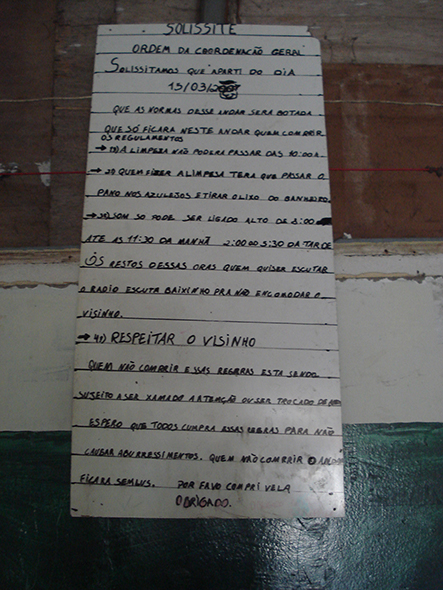 SOLISSITE
ORDEM DA COORDENAÇÃO GERAL
SOLISSITAMOS QUE APARTI DO DIA
15/03/2007
QUE AS NORMAS DESSE ANDAR SERA BOTADA
QUE SÓ FICARA NESTE ANDAR QUEM COMBRIR
OS REGULAMENTOS
→ 1º) A LIMPEZA NÃO PODERA PASSAR DAS 10:00
→ 2º QUEM FIZER A LIMPEZA TERA QUE PASSAR O
PANO NOS AZULEJOS E TIRAR O LIXO DO BANHEIRO.
→ 3º) SOM SO PODE SER LIGADO ALTO DE 8:00
ATE AS 11:30 DA MANHÃ 2:00 5:30 DA TARDE
OS RESTOS DESSAS ORAS QUEM QUISER ESCUTAR
O RADIO ESCUTA BAIXINHO PRA NÃO ENCOMODAR O
VISINHO.
→ 4º) RESPEITAR O VISINHO
QUEM NÃO COMBRIR ESSAS REGRAS ESTA SENDO
SUSEITO A SER XAMADO A ATENÇÃO OU SER TROCADO DE
ESPERO QUE TODOS CUMPRA ESSAS REGRAS PARA NÃO
CAUSAR ABURRESSIMENTOS. QUEM NÃO COMBRIR O
FICARA SEM LUS. POR FAVO COMPRI VELA
OBRIGADO.